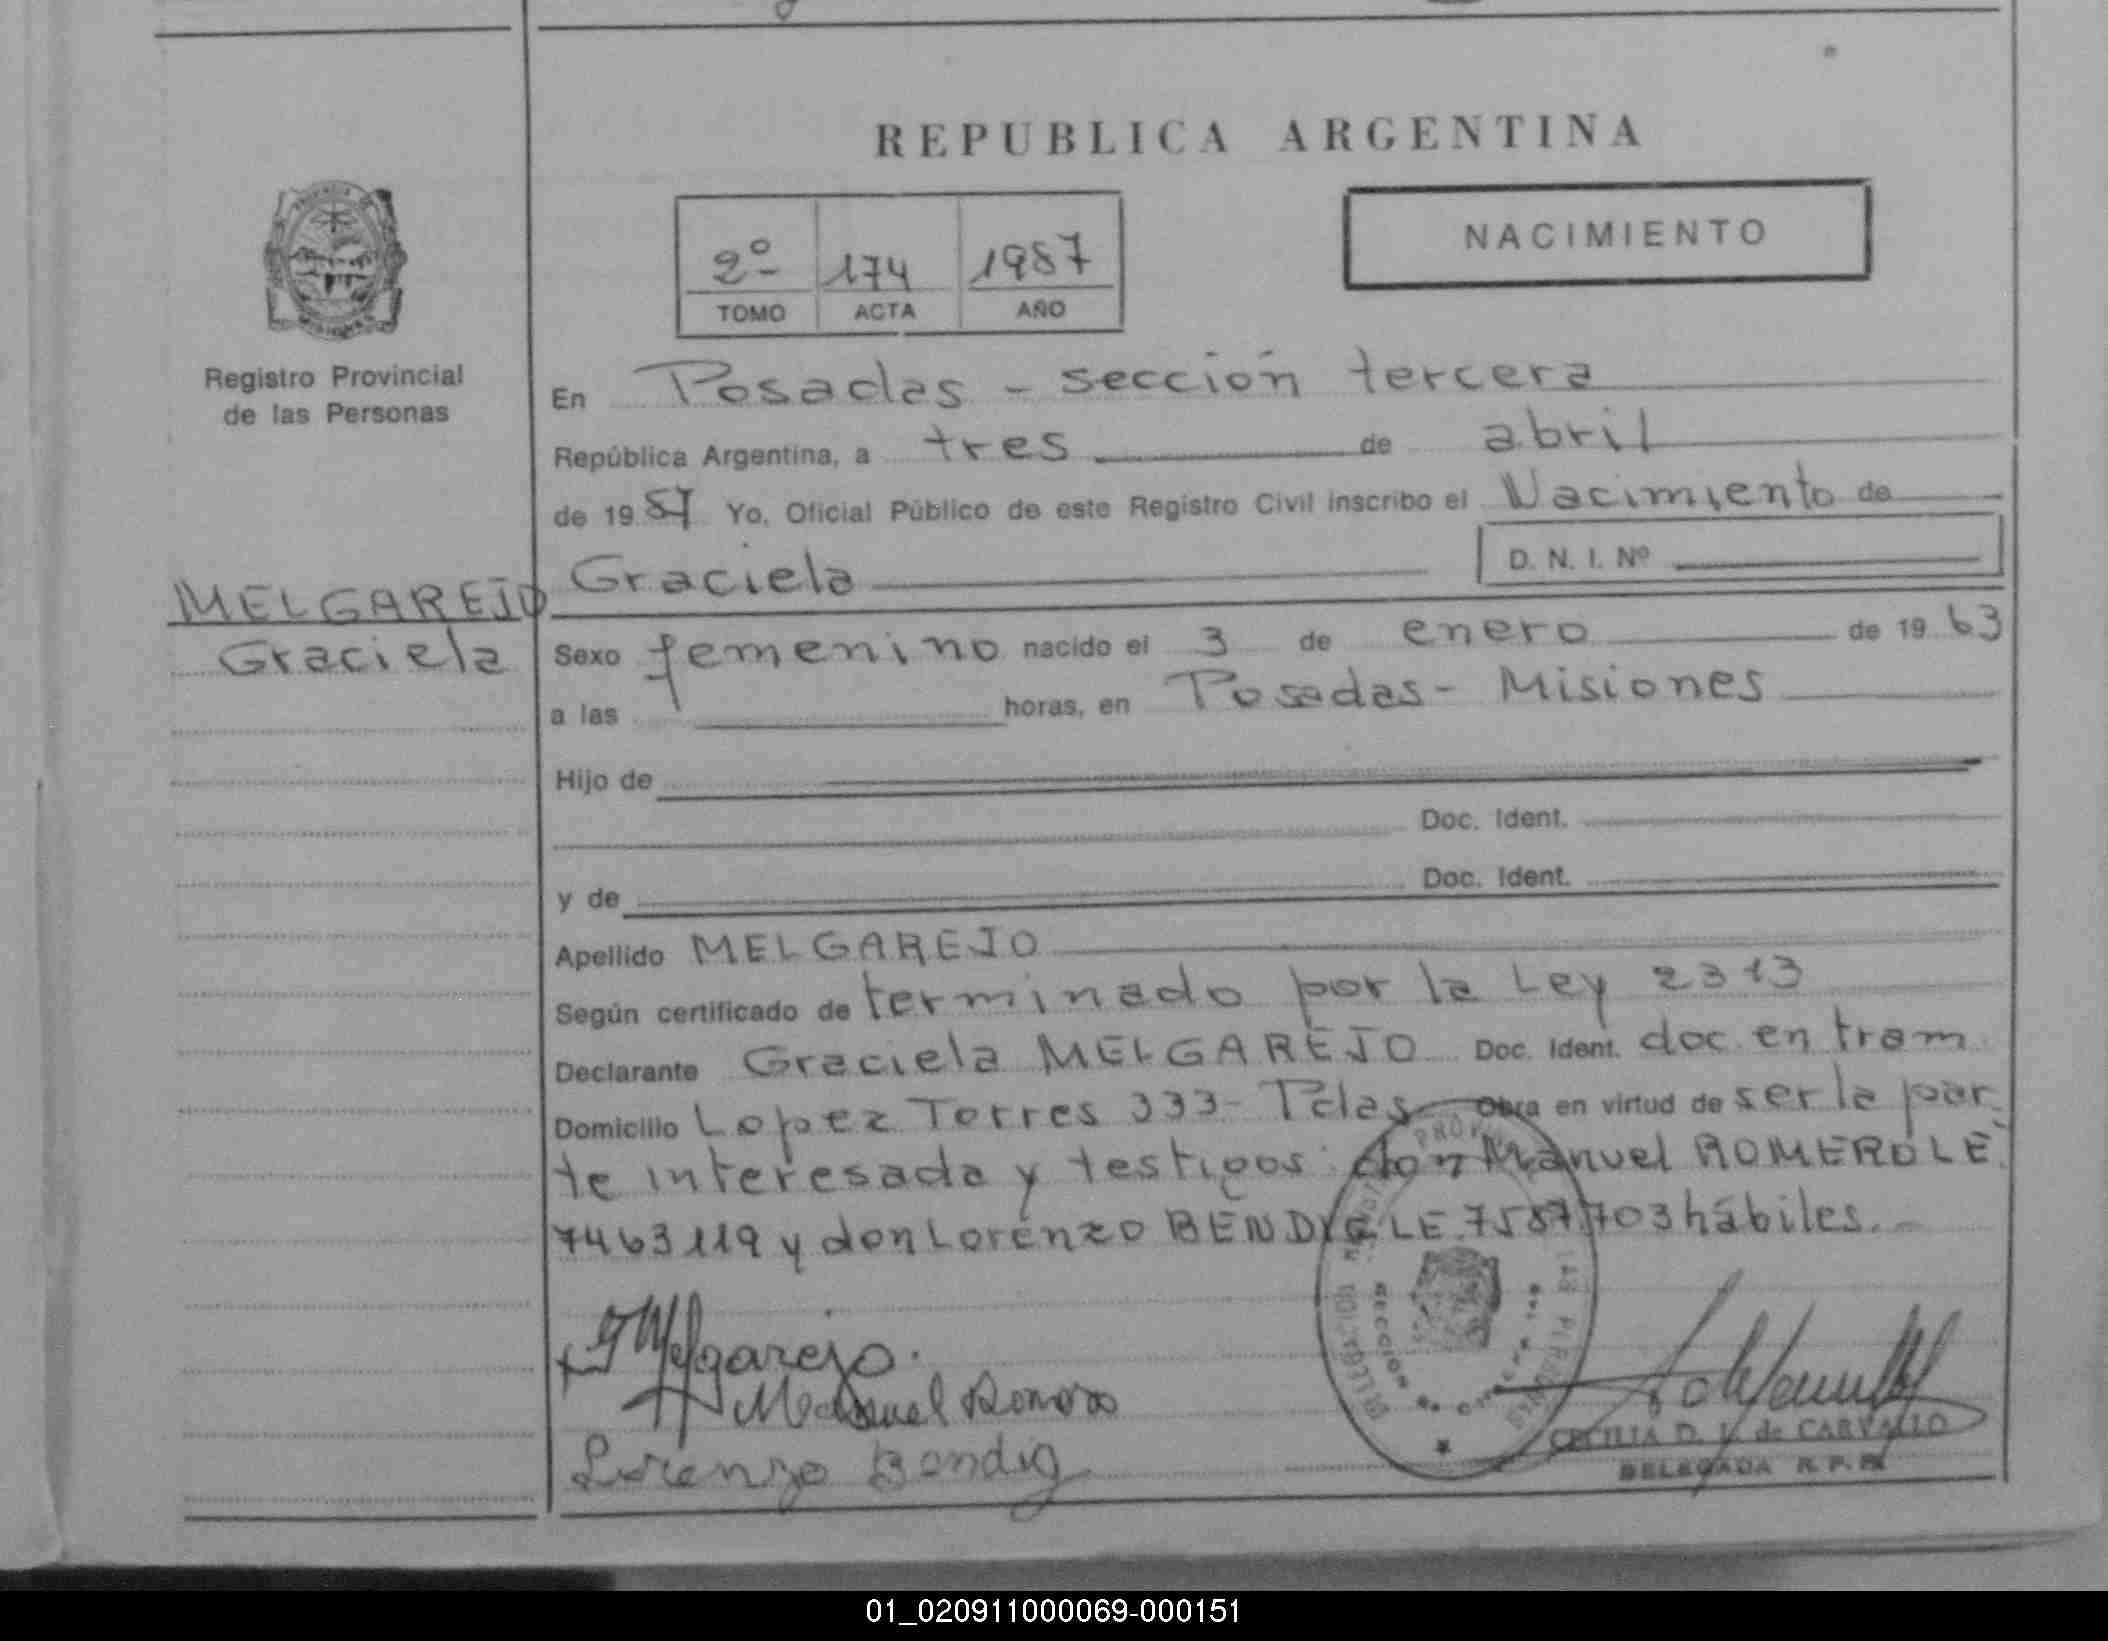 REPUBLICA ARGENTINA
NACIMIENTO
2º 174 1987
TOMO ACTA AÑO
Registro Provincial
de las Personas
En Posadas - sección tercera
República Argentina, a tres de abril
de 1987 Yo, Oficial Público de este Registro Civil inscribo el Nacimiento de
D. N. I. Nº
MELGAREJO
Graciela
Graciela
Sexo femenino nacido el 3 de enero de 1963
a las horas, en Posadas - Misiones
Hijo de
Doc. Ident.
y de Doc. Ident.
Apellido MELGAREJO
Según certificado de terminado por la Ley 2313
Declarante Graciela MELGAREJO Doc. Ident. doc. en tram
Domicilio Lopez Torres 333- Pdas Obra en virtud de ser la par
te interesada y testigos don Manuel ROMERO LE.
7463119 y don Lorenzo BENDIG LE. 7587703 hábiles.
G Melgarejo.
Manuel Romero
Lorenzo Bendig
CECILIA D. V. de CARVALLO
DELEGADA R. P. P.
01_020911000069-000151